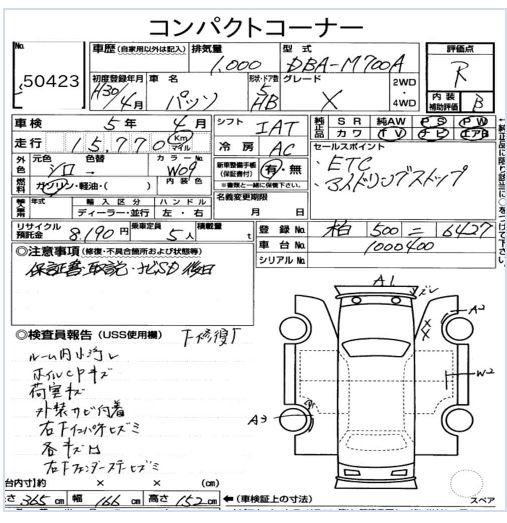 コンパクトコーナー
No. 50423
車歴 (自家用以外は記入) 排気量 1,000 型式 DBA-M700A 評価点 R
初度登録年月 H30年/4月 車名 パッソ 形状・ドア数 5 HB グレード X 2WD・4WD 内装補助評価 B
車検 5年 4月 シフト IAT 純正品 SR 純AW PS PW
走行 15,770 Km マイル 冷房 AC カワ TV ナビ エアB
外色 元色 シロ 色替 → カラーNo. W09 新車整備手帳(保証書付) 有・無 セールスポイント
燃料 ガソリン・軽油・( ) 内装色 ※書類と一緒に保管して下さい。 ・ETC
輸入車 年式 輸入区分 ハンドル 名義変更期限 ・アイドリングストップ
ディーラー・並行 左・右 月 日
リサイクル預託金 8,190円 乗車定員 5人 積載量 t 登録No. 柏 500 ニ 6427
◎注意事項(修復・不具合箇所および状態等) 車台No. 1000400
保証書、取説・ナビSD後日 シリアルNo.
◎検査員報告(USS使用欄) 下修復下
A1
ズレ
A2
W2
A3
ルーム内小汚レ
ホイルCPキズ
荷室キズ
外装サビ付着
右下インパネヒズミ
各キズ凹
右Fフェンダーステーヒズミ
台内寸(約 × × )(cm)
さ 365cm 幅 166cm 高さ 152cm ←(車検証上の寸法) スペア